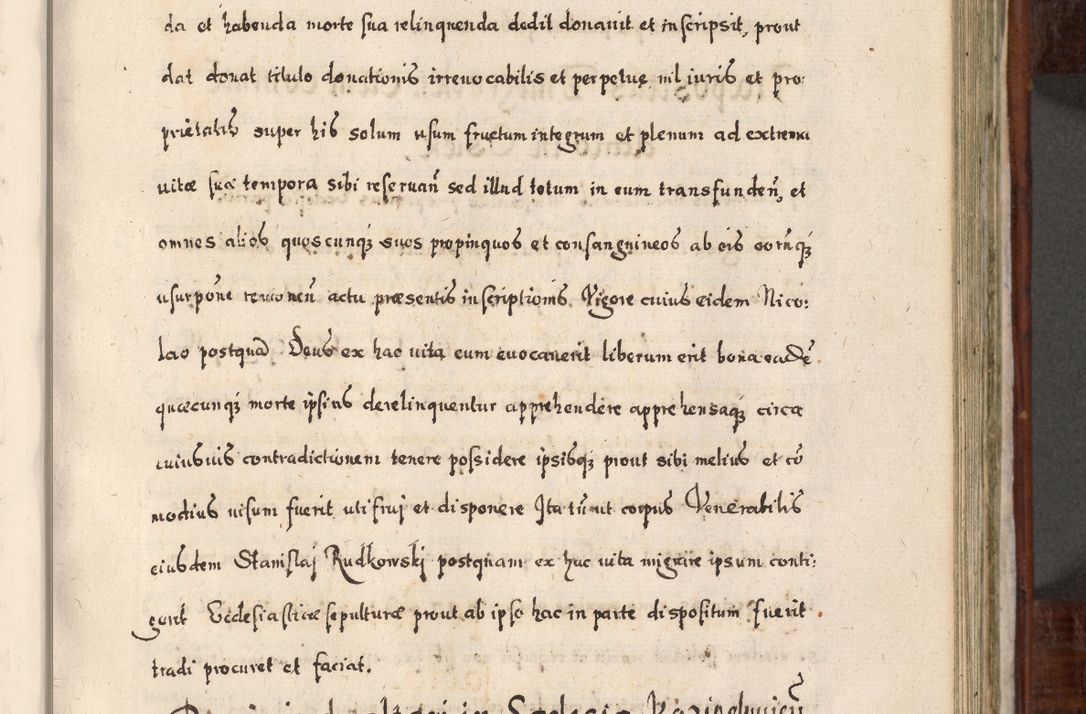 da et habenda morte sua relinquenda dedit donauit et inscripsit, prout
dat donat titulo donationis irreuocabilis et perpetuę nil iuris et pro:
prietatis super his solum usum fructum integrum et plenum ad extrema
uitæ suæ tempora sibi reseruañ sed illud totum in eum transfundeñ, et
omnes alios quoscunq́ꝫ suos propinquos et consanguineos ab eis eorũq́ꝫ
usurpõne actu præsentis inscriptionis. Vigore cuius eidem Nico:
lao postquã Deus ex hac uita eum euocauerit liberum erit bona eadẽ
quæcunq́ꝫ morte ipsius derelinquentur apprehendere apprehensaq́ꝫ circa
cuiusuis contradictionem tenere possidere ipsisq́ꝫ prout sibi melius et cõ
modius uisum fuerit uti frui et disponere Ita tñ ut corpus Venerabilis
eiusdem Stanislaj Rudkowskj postquam ex hac uita migrare ipsum conti:
gerit Ecclesiasticæ sepulturæ prout ab ipso hac in parte dispositum fuerit
tradi procuret et faciat.
in Ecclesia